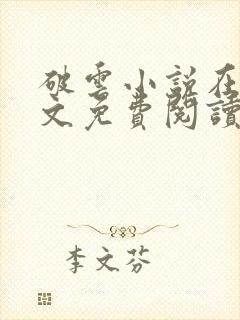 破雲小說在
文免費閱讀
李文芬